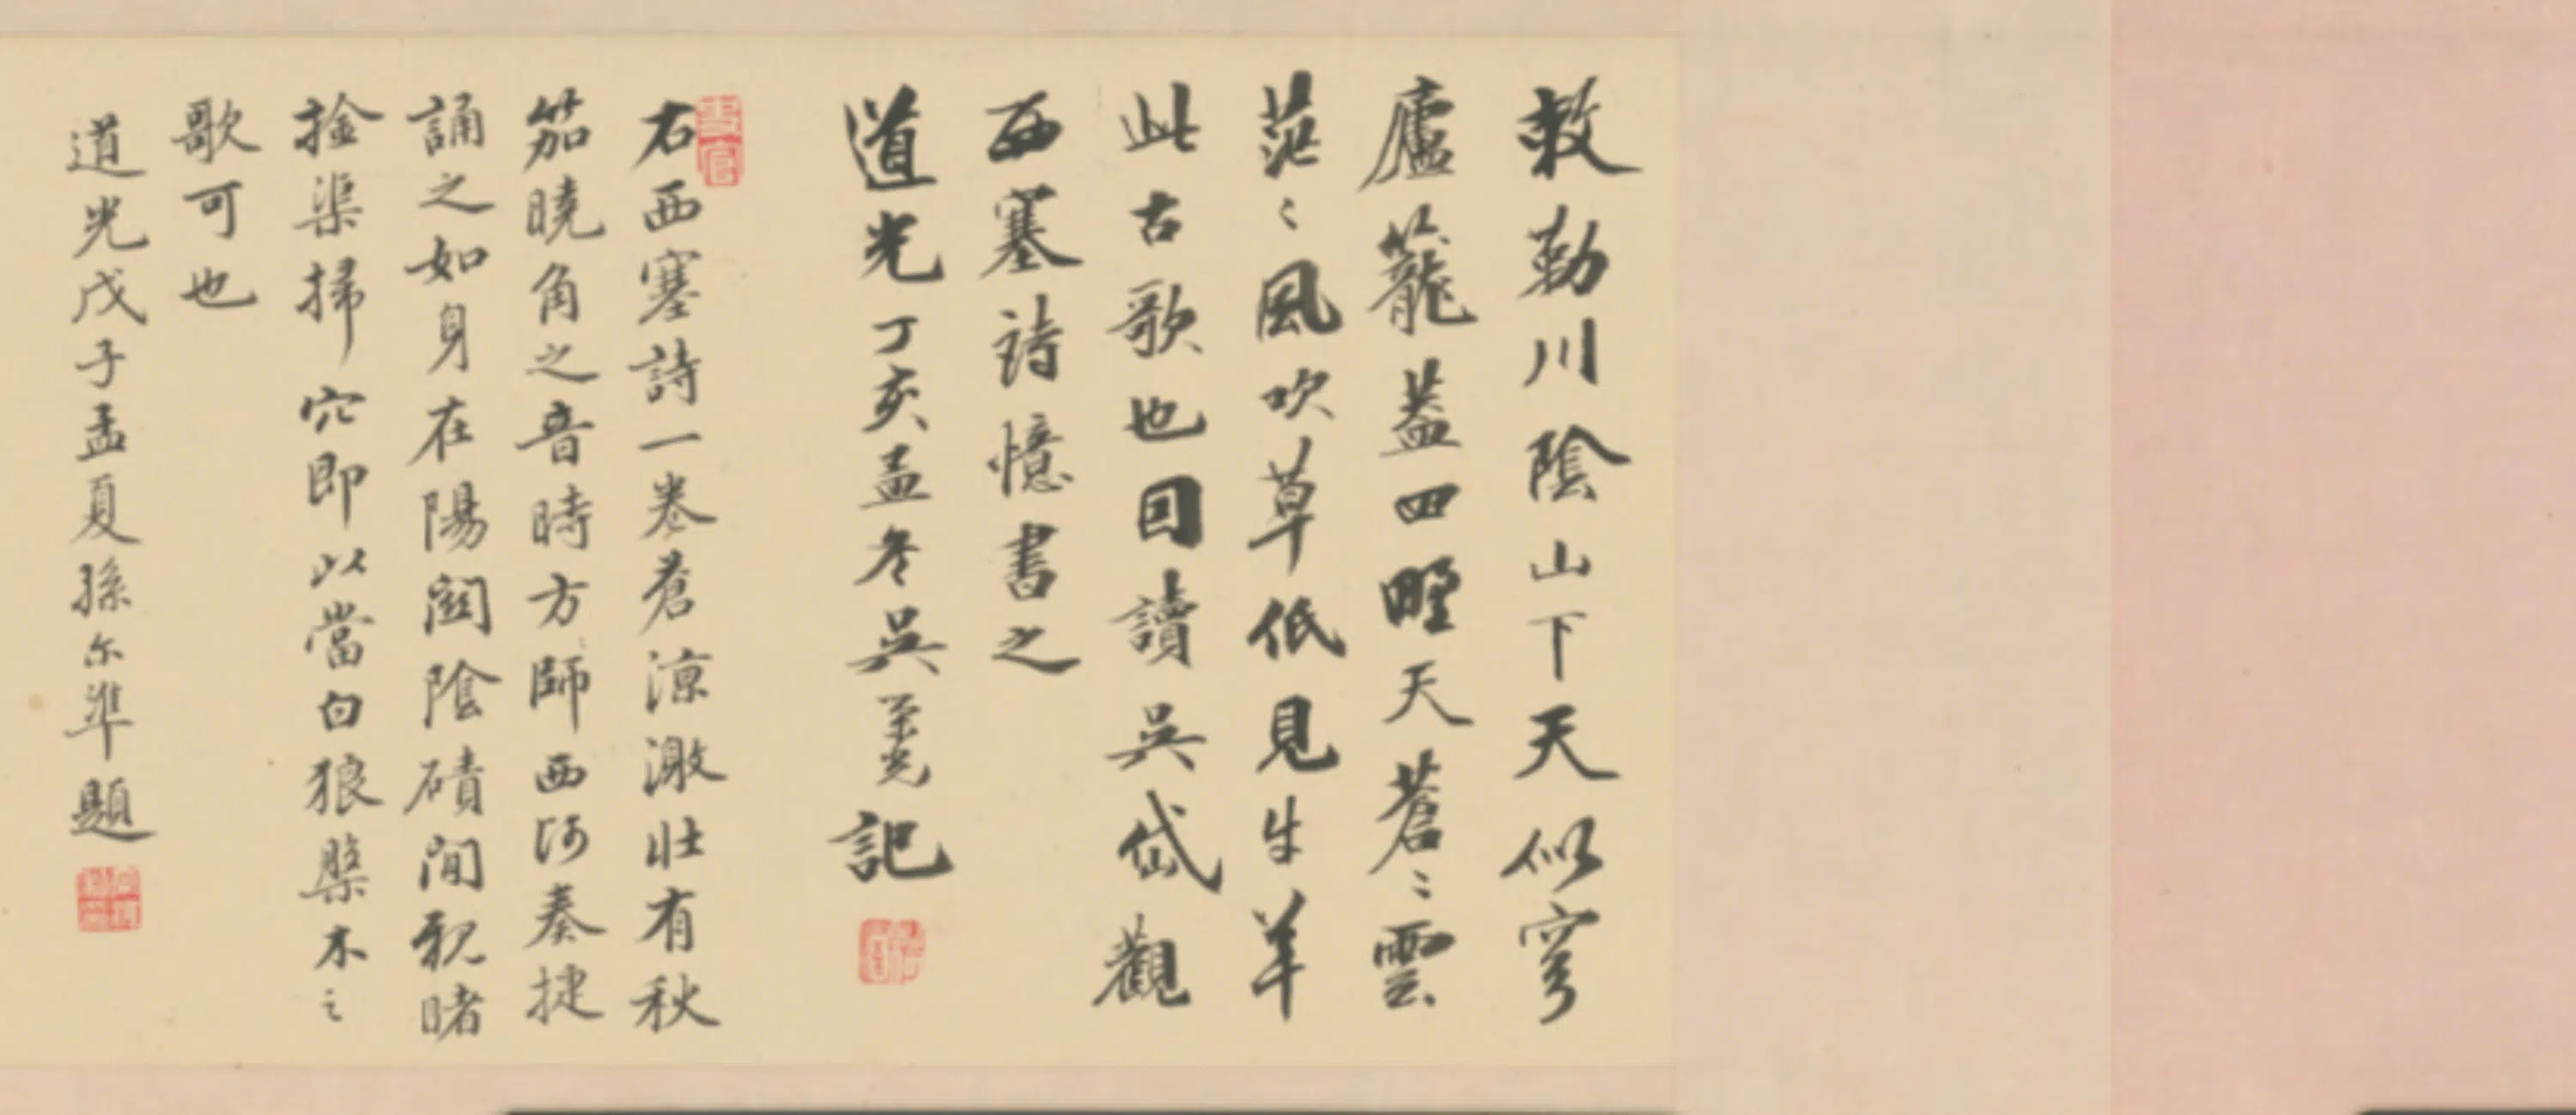 敕勒川陰山下天似穹
廬籠蓋四野天蒼〻雲
茫〻風吹草低見牛羊
此古歌也回讀吳岱觀
西塞詩憶書之
道光丁亥孟冬吳榮光記
右西塞詩一卷蒼涼激壯有秋
笳曉角之音時方師西河奏捷
誦之如身在陽關陰磧間親睹
捡渠掃穴即以當白狼槃木之
歌可也
道光戊子孟夏孫尔準題